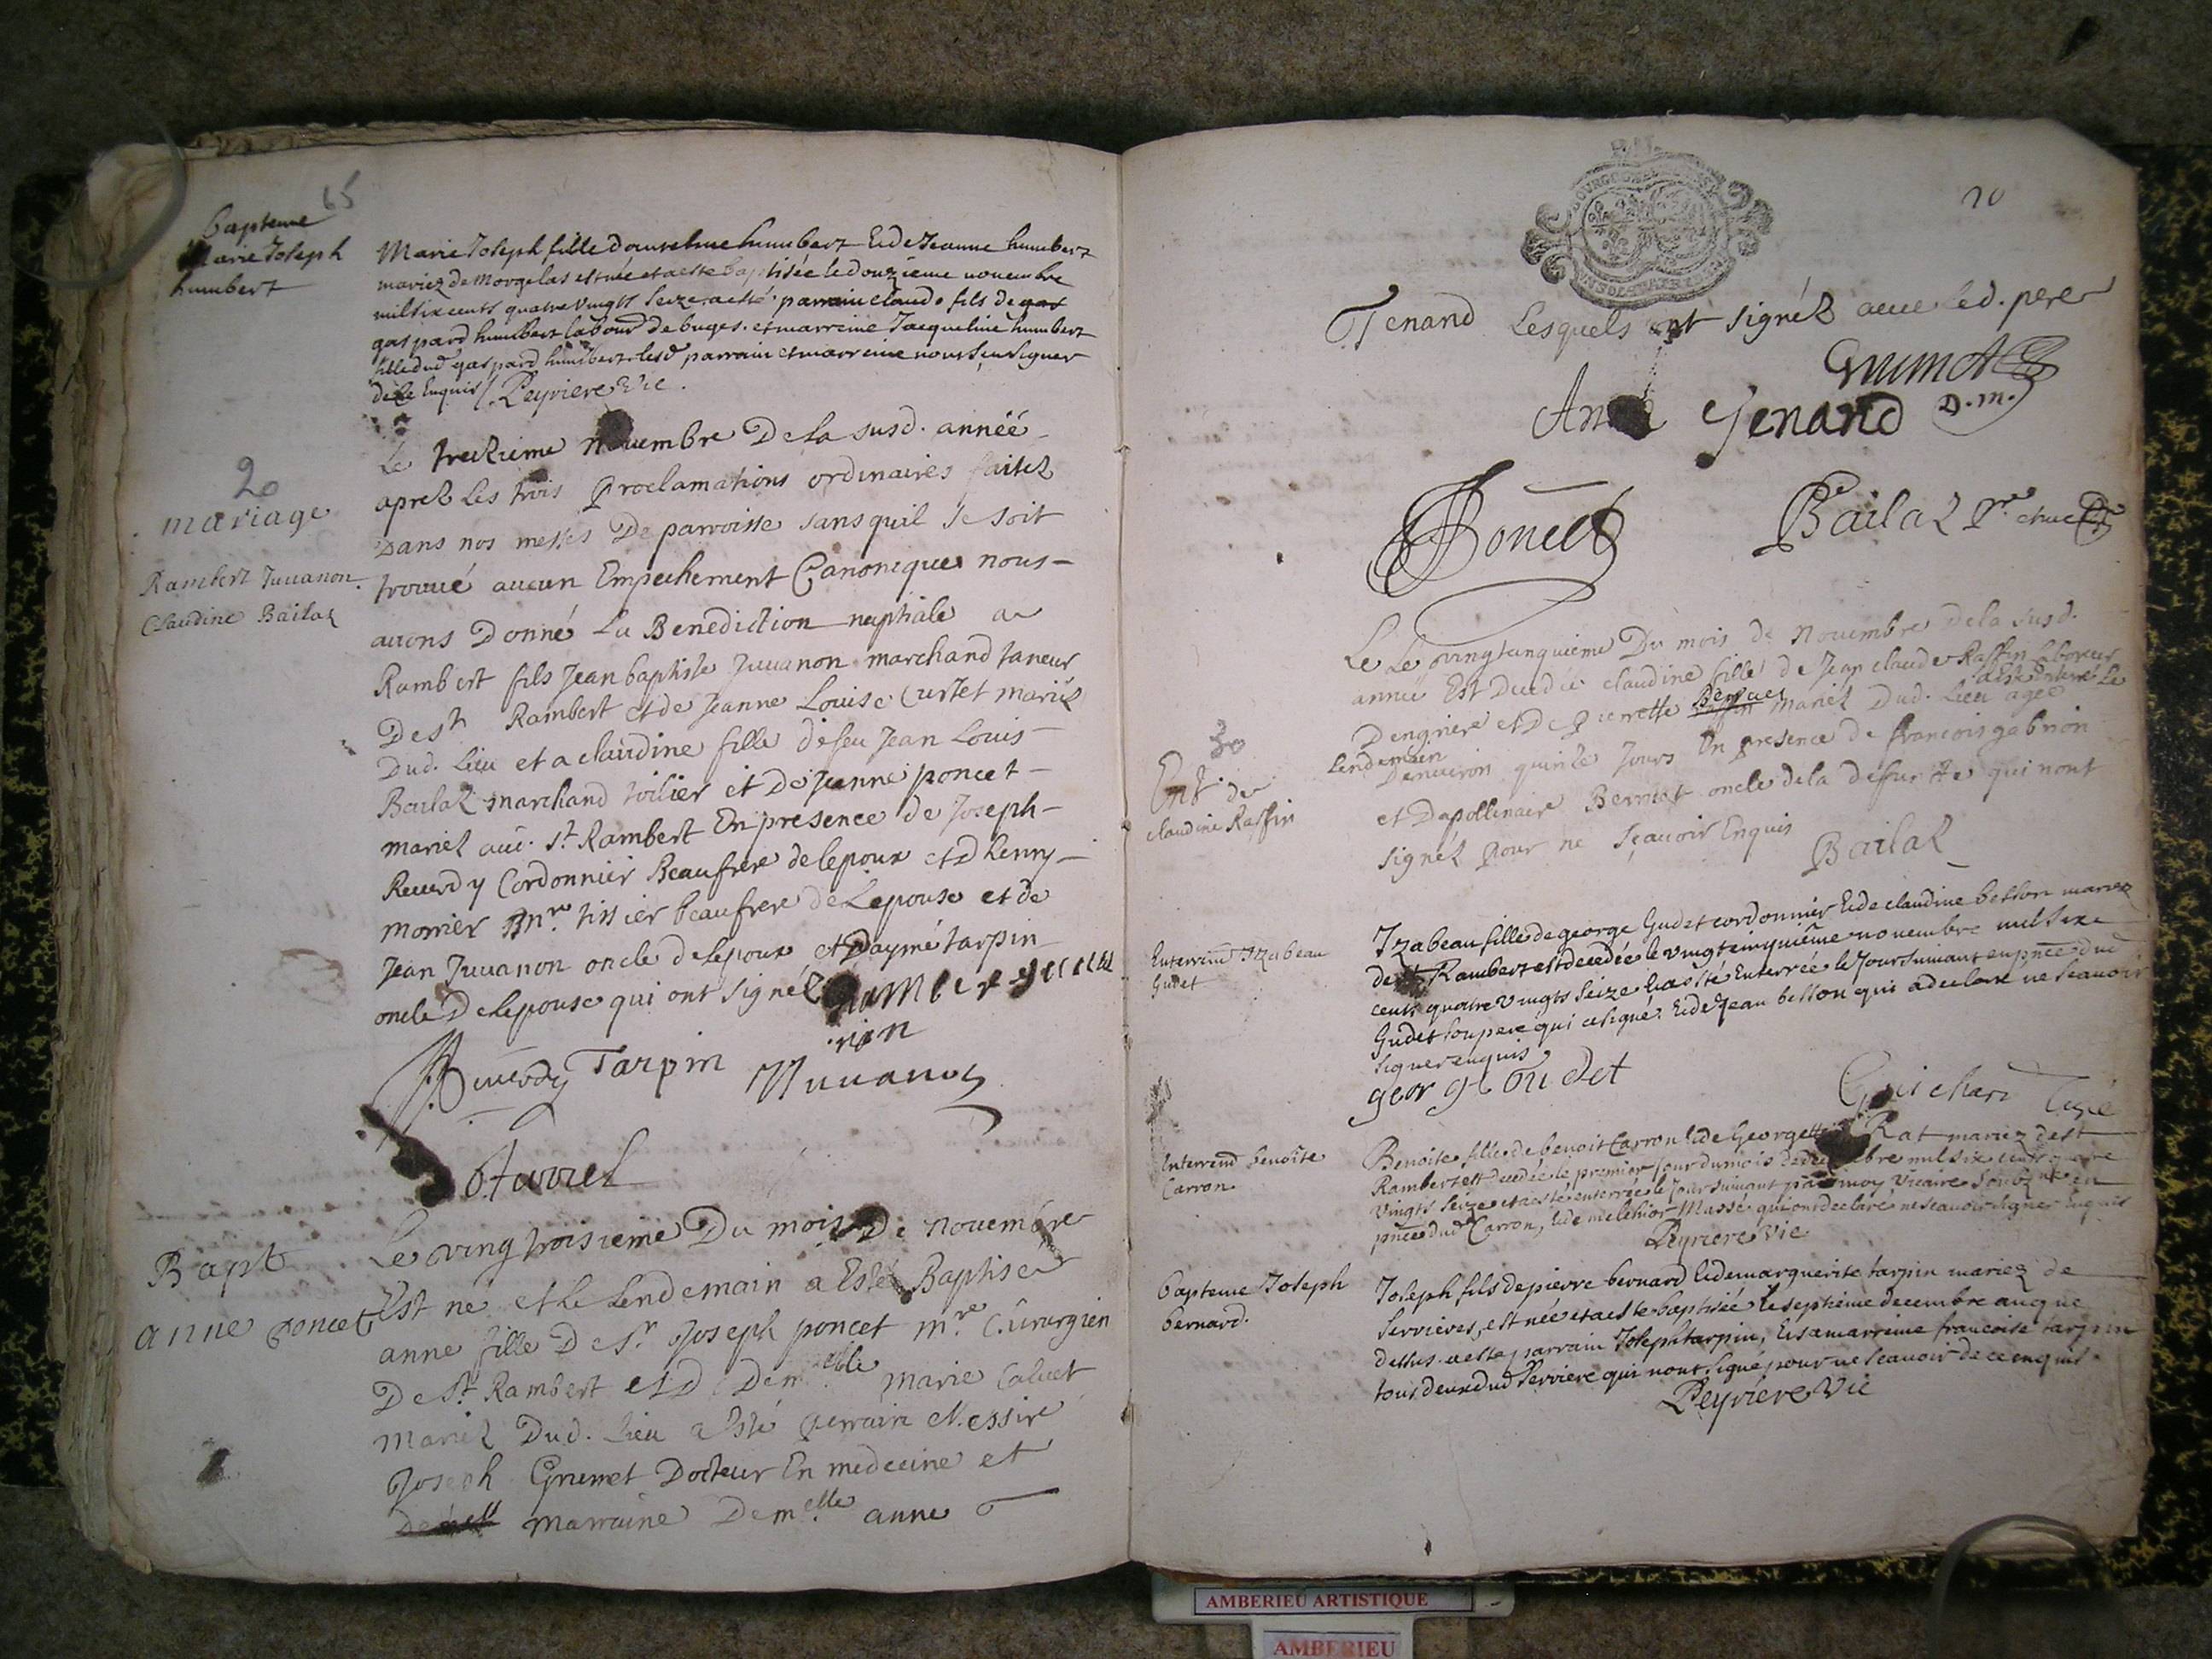 65
Bapteme
Marie Joseph
humbert
Marie Joseph fille d'anthelme humbert & de Jeanne humbert
mariez de Morgelas est née et a esté baptisée le douzieme novembre
mil six cents quatre vingts seize a esté parrain claude fils de
gaspard humbert labour de buges. et marreine Jacqueline humbert
fille dud gaspard humbert lesd parrain et marreine n'ont sceu signer
de ce Enquis /. Peyriere Vic.
20
mariage
Rambert Juuanon
Claudine Bailaz
Le treizieme Nouembre De La susd. année
aprez Les trois Proclamations ordinaires faitez
Dans nos messes De parroisse sans quil se soit
trouué aucun Empechement Canonique nous
auons Donné La Benediction nuptiale a
Rambert fils Jean baptiste Juuanon marchand taneur
De st Rambert et de Jeanne Louise Curtet mariéz
Dud. Lieu et a claudine fille de feu Jean Louis
Bailaz marchand toilier et de Jeanne poncet
mariéz aud. st Rambert En presence de Joseph
Reuerdy Cordonnier Beaufrere de lepoux et d henry
monier mre tissier beaufrere de Lepouse et de
Jean Juuanon oncle de lepoux et Daymé tarpin
oncle De lepouse qui ont signéz Rambert Juua
non
Reuerdy Tarpin Juuanon
Bapt
anne poncet
Le ving troisieme Du mois De nouembre
Est né et le Lendemain a Esté Baptisée
anne fille De Sr Joseph poncet mre Cirurgien
De St Rambert et D Demelle marie Caluet
Mariéz Dud. Lieu a Esté perrain Messire
Joseph Grumet Docteur En medecine et
marraine Demelle anne
20
Tenand Lesquels ont signéz auec led. pere
Grumet D. m.
Anne Tenand
Poncet
Bailaz pr.
30
Ent de
claudine Raffin
Le Le vingtcinquieme Du mois de Nouembre de la susd.
année Est Decedée claudine fille de Jean claude Raffin Laboreur
Dengriere et De pierrette Bernuet mariéz Dud. Lieu agée
a Esté Enterré Le
Lendemain
Denuiron quinze Jours En presence de francois gabrion
et Dapollinaire Bernuet oncle de la defuncte qui nont
signéz pour ne sçauoir Enquis
Bailaz
Enterremt Izabeau
Gudet
Izabeau fille de george Gudet cordonnier & de claudine besson mariez
de st Rambert est decedée le vingt cinquiême novembre mil six
cents quatre vingts seize & a esté Enterrée le Jour suivant en pnce dud
Gudet son pere qui a signé. & de Jean besson qui a declaré ne scauoir
signer enquis
george Gudet
Guichard
Enterremt Benoîte
Carron
Benoîte fille de benoit Carron & de Georgette Rat mariez de st
Rambert est decedée le premier jour du mois de decembre mil six cents quatre
vingts seize et a esté enterrée le Jour suivant par moy vicaire soubzné en
pnce dud Carron, & de melchior Massé qui ont declaré ne scauoir signer Enquis
Peyriere vic
Bapteme Joseph
Bernard.
Joseph fils de pierre bernard & de marguerite tarpin mariez de
Servieres, est née et a esté baptisée le septieme decembre an que
dessus. a esté parrain Joseph tarpin, & sa marreine francoise tarpin
tous deux dud Serviere qui n'ont signé pour ne scauoir de ce enquis
Peyriere Vic
AMBERIEU ARTISTIQUE
AMBERIEU